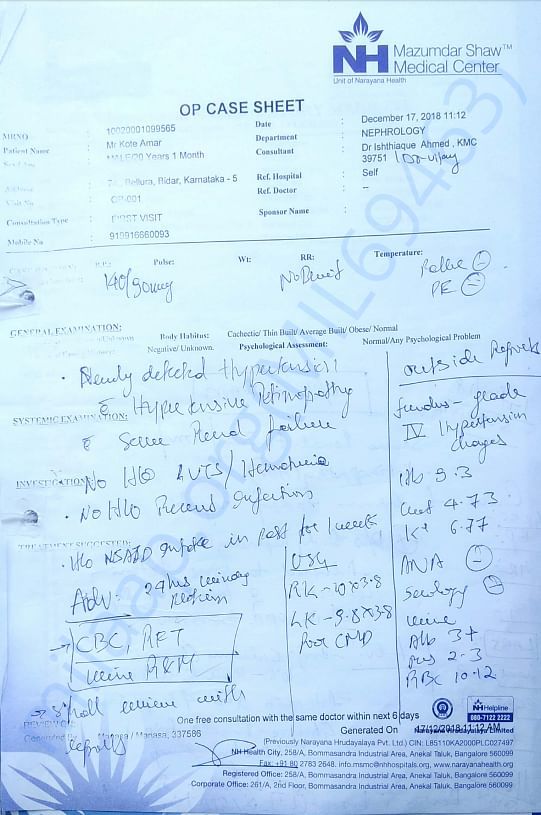 NH Mazumdar Shaw™
Medical Center
Unit of Narayana Health
OP CASE SHEET
MRNO : 10020001099565
Date : December 17, 2018 11:12
Patient Name : Mr Kote Amar
Department : NEPHROLOGY
MALE/20 Years 1 Month
Consultant : Dr Ishthiaque Ahmed , KMC
39751
Bellura, Bidar, Karnataka - 5
Ref. Hospital : Self
Visit No : OP-001
Ref. Doctor : --
Consultation Type : FIRST VISIT
Sponsor Name :
Mobile No : 919916660093
B.P.: Pulse: Wt: RR: Temperature:
140/90mmHg
No Bruit
Pallor -
PE -
GENERAL EXAMINATION: Body Habitus: Cachectic/ Thin Built/ Average Built/ Obese/ Normal
Negative/ Unknown. Psychological Assessment: Normal/Any Psychological Problem
· Newly detected Hypertension
c Hypertensive Retinopathy
SYSTEMIC EXAMINATION:
c Severe Renal failure
INVESTIGATION
No H/o LUTS/Hematuria
· No H/o Recent Infections
TREATMENT SUGGESTED:
· H/o NSAID intake in past for 1 week
Adv: 24 hrs urinary
protein
→ CBC, RFT
Urine R&M
→ s'holl review with
reports
USG
RK - 10x3.8
LK - 9.8x3.8
Poor CMD
outside Reports
fundus - grade
IV Hypertension
changes
Hb 9.3
Creat 4.73
K+ 6.77
ANA -
Serology -
Urine
Alb 3+
Pus 2-3
RBC 10-12
REVIEW ON
One free consultation with the same doctor within next 6 days
NH Helpline
080-7122 2222
Generated By : Manasa / Manasa, 337586
Generated On : 17/12/2018 11:12 AM
Narayana Hrudayalaya Limited
(Previously Narayana Hrudayalaya Pvt. Ltd.) CIN: L85110KA2000PLC027497
NH Health City, 258/A, Bommasandra Industrial Area, Anekal Taluk, Bangalore 560099
Fax: +91 80 2783 2648. info.msmc@nhhospitals.org, www.narayanahealth.org
Registered Office: 258/A, Bommasandra Industrial Area, Anekal Taluk, Bangalore 560099
Corporate Office: 261/A, 2nd Floor, Bommasandra Industrial Area, Anekal Taluk, Bangalore 560099